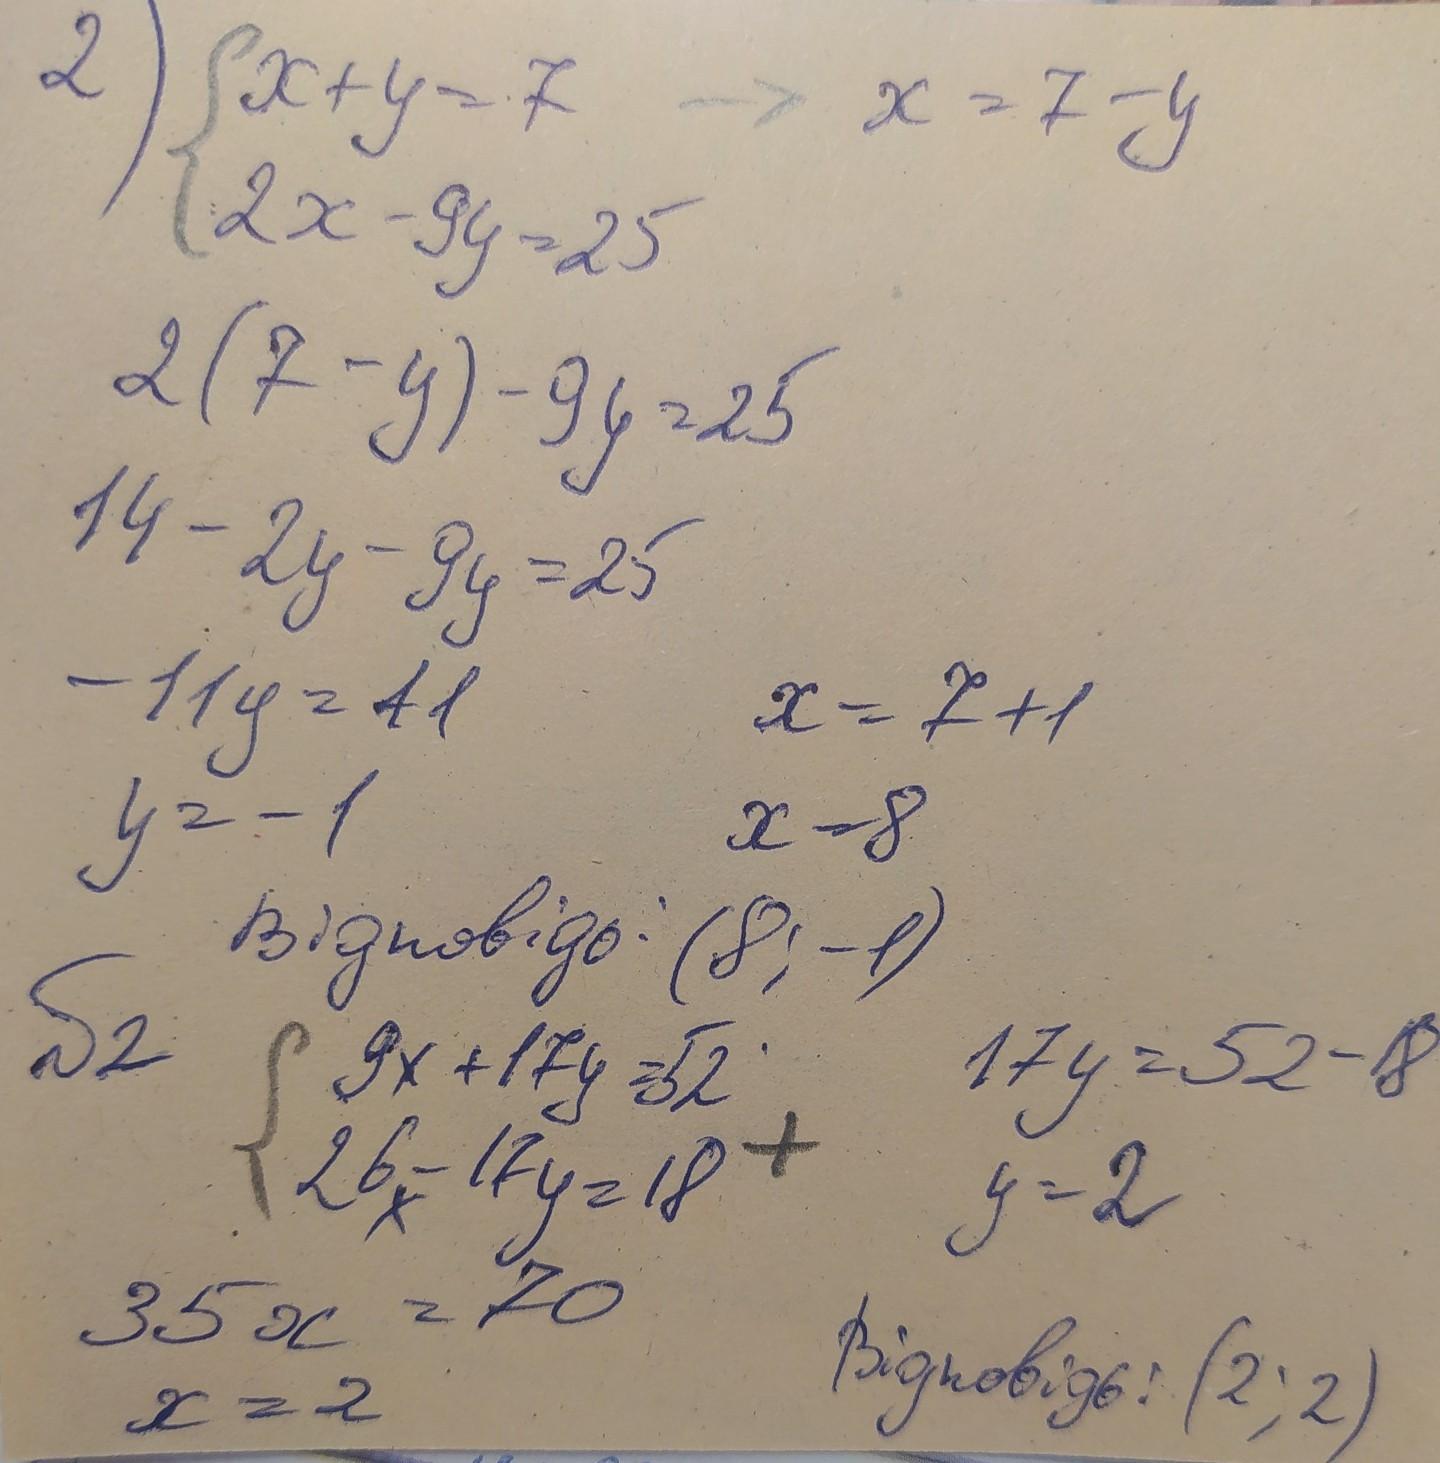 2) { x + y = 7 → x = 7 - y
2x - 9y = 25
2(7 - y) - 9y = 25
14 - 2y - 9y = 25
-11y = 11 x = 7 + 1
y = -1 x = 8
Відповідь: (8; -1)
№2 { 9x + 17y = 52 17y = 52 - 18
26x - 17y = 18 + y = 2
35x = 70
x = 2 Відповідь: (2; 2)